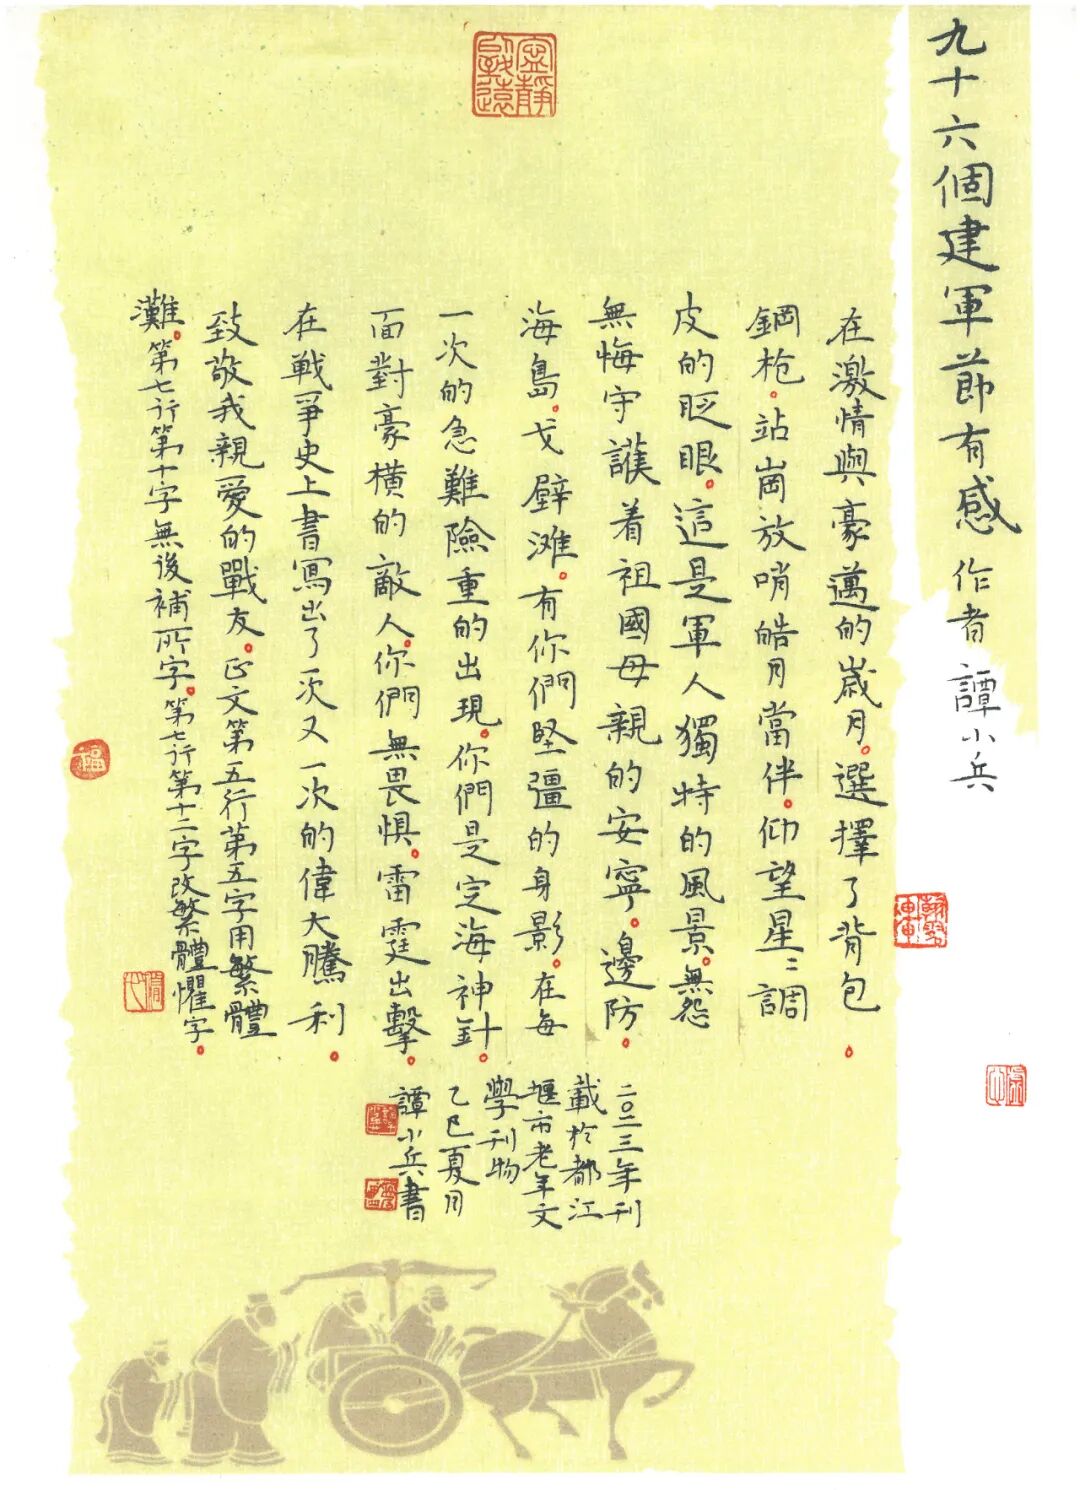 九十六個建軍節有感 作者 譚小兵
在激情與豪邁的歲月。選擇了背包。
鋼枪。站崗放哨皓月當伴。仰望星〻調
皮的眨眼。這是軍人獨特的風景。無怨
無悔守護着祖國母親的安寧。邊防。
海島。戈壁滩。有你們堅彊的身影。在每
一次的急難險重的出現。你們是定海神針。
面對豪横的敵人。你們無畏惧。雷霆出擊。
在戰爭史上書寫出了一次又一次的偉大騰利。
致敬我親愛的戰友。正文第五行第五字用繁體
灘。第七行第十字無後補所字。第七行第十二字改繁體懼字。
二〇二三年刊
載於都江
堰市老年文
學刊物
乙巳夏月
譚小兵書
寧靜
致遠
福